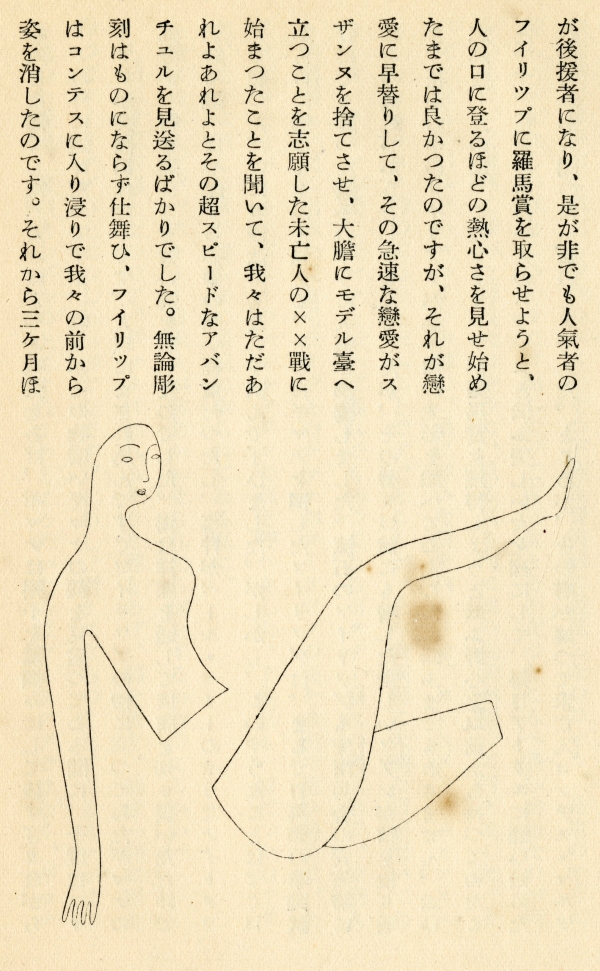 が後援者になり、是が非でも人氣者の
フイリツプに羅馬賞を取らせようと、
人の口に登るほどの熱心さを見せ始め
たまでは良かつたのですが、それが戀
愛に早替りして、その急速な戀愛がス
ザンヌを捨てさせ、大膽にモデル臺へ
立つことを志願した未亡人の××戰に
始まつたことを聞いて、我々はただあ
れよあれよとその超スピードなアバン
チユルを見送るばかりでした。無論彫
刻はものにならず仕舞ひ、フイリツプ
はコンテスに入り浸りで我々の前から
姿を消したのです。それから三ケ月ほ